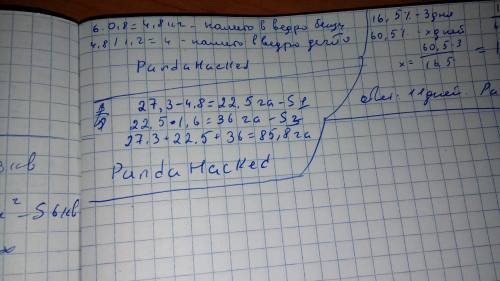 6·0,8=4,8 кг - налито в ведро
4,8/1,2=4 - налито в ведро
PandaHacked
27,3-4,8=22,5 га - S
22,5·1,6=36 га - S
27,3+22,5+36=85,8 га
Panda Hacked
16,5% - 3 дня
60,5% - x дней
x= 60,5·3 / 16,5 =
11 дней. Pa
кв
² - 56 кв